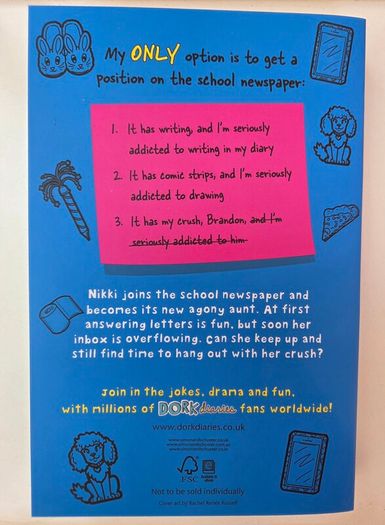 My ONLY option is to get a
position on the school newspaper:
1. It has writing, and I'm seriously
addicted to writing in my diary
2. It has comic strips, and I'm seriously
addicted to drawing
3. It has my crush, Brandon, and I'm
seriously addicted to him
Nikki joins the school newspaper and
becomes its new agony aunt. At first
answering letters is fun, but soon her
inbox is overflowing. Can she keep up and
still find time to hang out with her crush?
Join in the jokes, drama and fun,
with millions of DORK diaries fans worldwide!
www.dorkdiaries.co.uk
FSC
Not to be sold individually
Cover art by Rachel Renée Russell